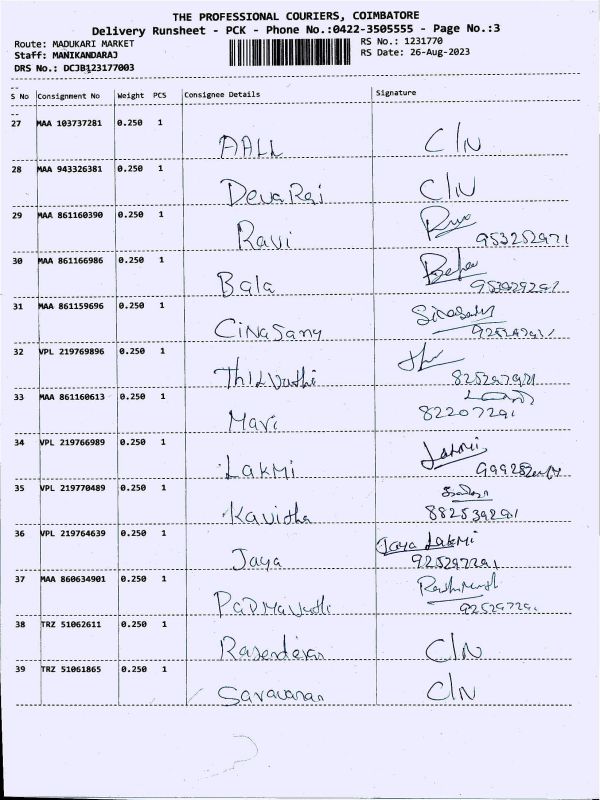 THE PROFESSIONAL COURIERS, COIMBATORE
Delivery Runsheet - PCK - Phone No.:0422-3505555 - Page No.:3
Route: MADUKARI MARKET RS No.: 1231770
Staff: MANIKANDARAJ RS Date: 26-Aug-2023
DRS No.: DCJB123177003
S No Consignment No Weight PCS Consignee Details Signature
27 MAA 103737281 0.250 1 AALL C/N
28 MAA 943326381 0.250 1 DevaRaj C/N
29 MAA 861160390 0.250 1 Ravi 953252971
30 MAA 861166986 0.250 1 Bala
31 MAA 861159696 0.250 1 CiNaSamy
32 VPL 219769896 0.250 1
33 MAA 861160613 0.250 1 Mari 82207291
34 VPL 219766989 0.250 1 LakMi
35 VPL 219770489 0.250 1 Kavitha
36 VPL 219764639 0.250 1 Jaya Jaya LakMi
37 MAA 860634901 0.250 1 PaDMaVathi
38 TRZ 51062611 0.250 1 Rasendiran C/N
39 TRZ 51061865 0.250 1 Saravanan C/N